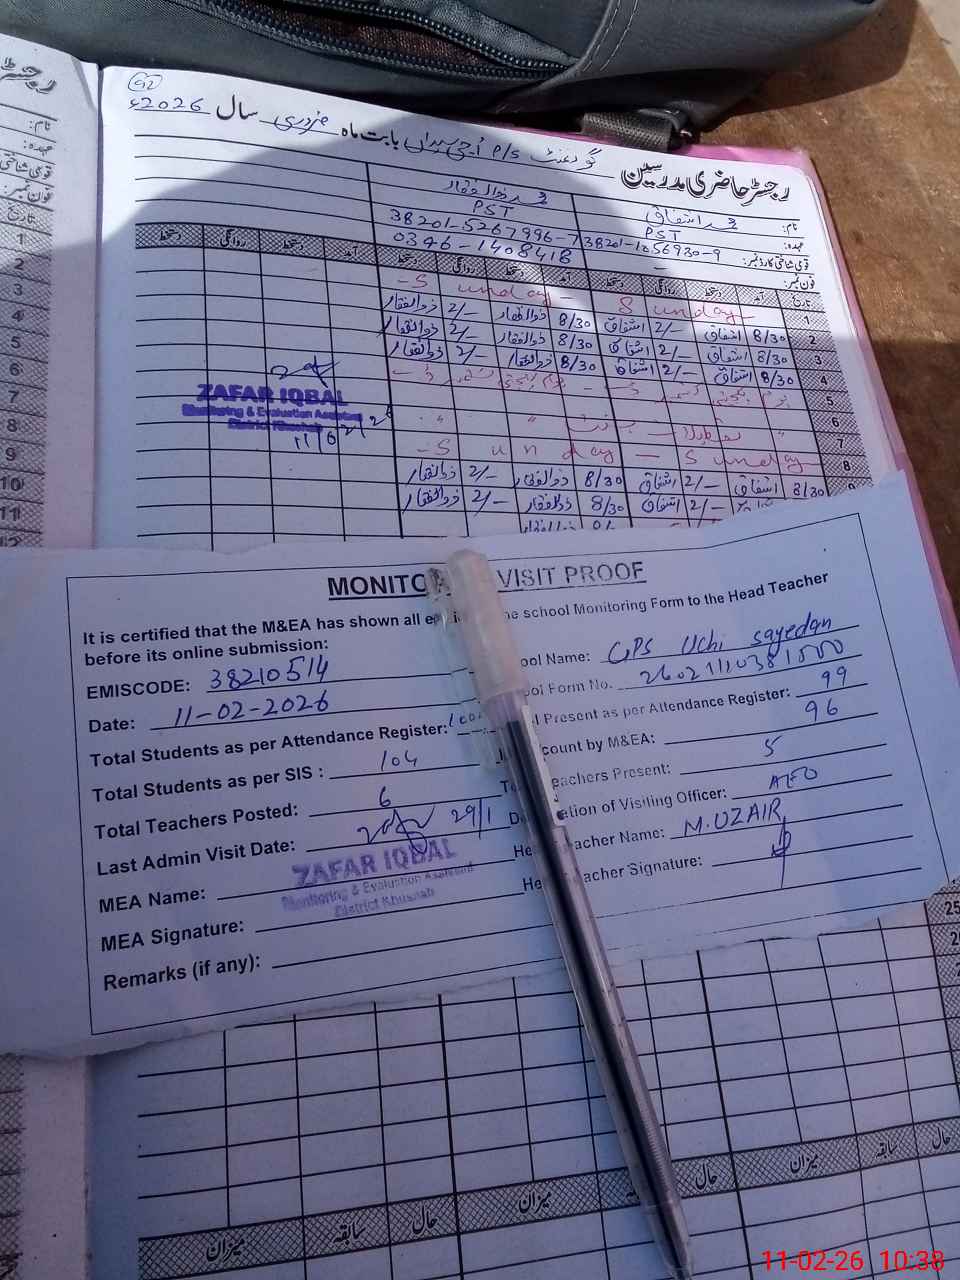 92
رجسٹر حاضری مدرسین گورنمنٹ P/S اُچی سیداں بابت ماہ فروری سال 2026ء
نام: محمد اشفاق محمد ذوالفقار
عہدہ: PST PST
قومی شناختی کارڈ نمبر: 38201-5267996-7
فون نمبر: 0346-1408418
تاریخ آمد دستخط روانگی دستخط آمد دستخط روانگی دستخط آمد دستخط روانگی دستخط
1 Sunday Sunday
2 8/30 اشفاق 2/- اشفاق 8/30 ذوالفقار 2/- ذوالفقار
3 8/30 اشفاق 2/- اشفاق 8/30 ذوالفقار 2/- ذوالفقار
4 8/30 اشفاق 2/- اشفاق 8/30 ذوالفقار 2/- ذوالفقار
5 یوم یکجہتی کشمیر ڈے یوم یکجہتی کشمیر ڈے
6
7
8 Sunday Sunday
9 8/30 اشفاق 2/- اشفاق 8/30 ذوالفقار 2/- ذوالفقار
8/30 2/- اشفاق 8/30 ذوالفقار 2/- ذوالفقار
ZAFAR IQBAL
Monitoring & Evaluation Assistant
District Khushab
11/02/26
رجسٹر
نام:
عہدہ:
قومی شناختی
فون نمبر:
تاریخ
1
2
3
4
5
6
7
8
9
10
11
12
MONITO VISIT PROOF
It is certified that the M&EA has shown all the school Monitoring Form to the Head Teacher
before its online submission:
EMISCODE: 38210514 School Name: GPS Uchi sayedan
Date: 11-02-2026 School Form No.
Total Students as per Attendance Register: Present as per Attendance Register: 99
Total Students as per SIS : 104 count by M&EA: 96
Total Teachers Posted: 6 Teachers Present: 5
Last Admin Visit Date: 29/1 Designation of Visiting Officer: AEO
MEA Name: ZAFAR IQBAL Head Teacher Name: M.UZAIR
Monitoring & Evaluation Assistant
District Khushab
MEA Signature: Head Teacher Signature:
Remarks (if any):
25
26
حال سابقہ میزان حال میزان حال سابقہ میزان
11-02-26 10:38